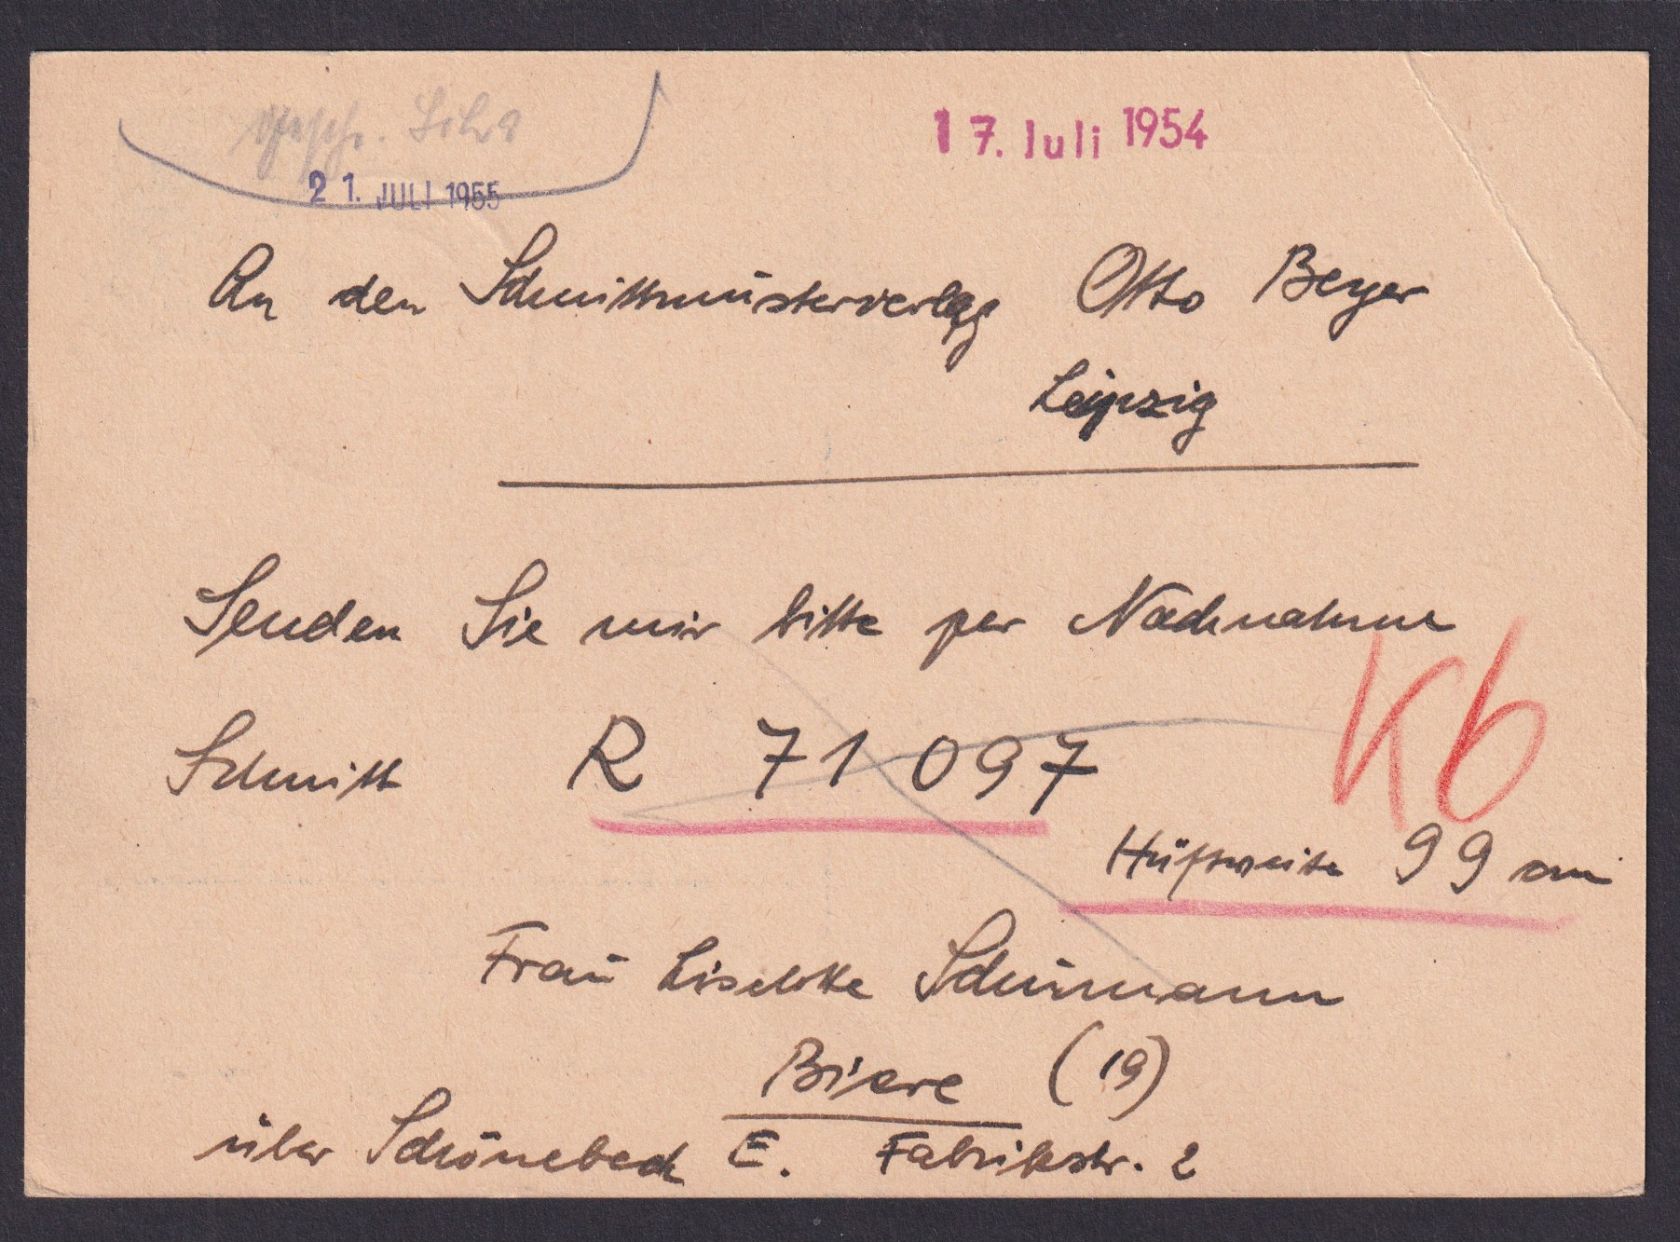 17. Juli 1954
21. JULI 1955
An den Schnittmusterverlag Otto Beyer
Leipzig
Senden Sie mir bitte per Nachnahme
Schnitt R 71 097
Kb
Hüftweite 99 cm
Frau Liselotte Schürmann
Biere (19)
über Schönebeck E. Fabrikstr. 2